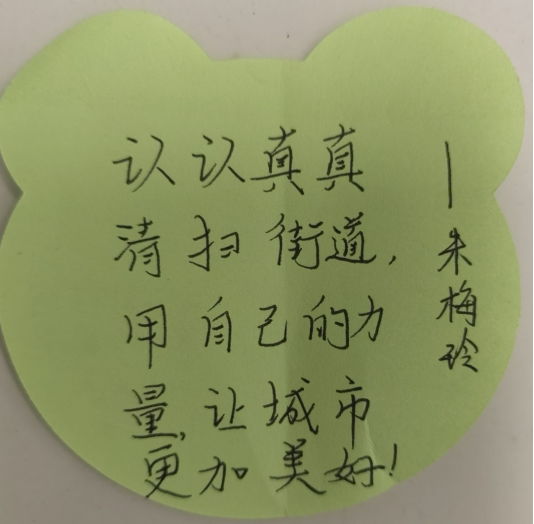 认认真真
清扫街道,
用自己的力
量,让城市
更加美好!
—朱梅玲